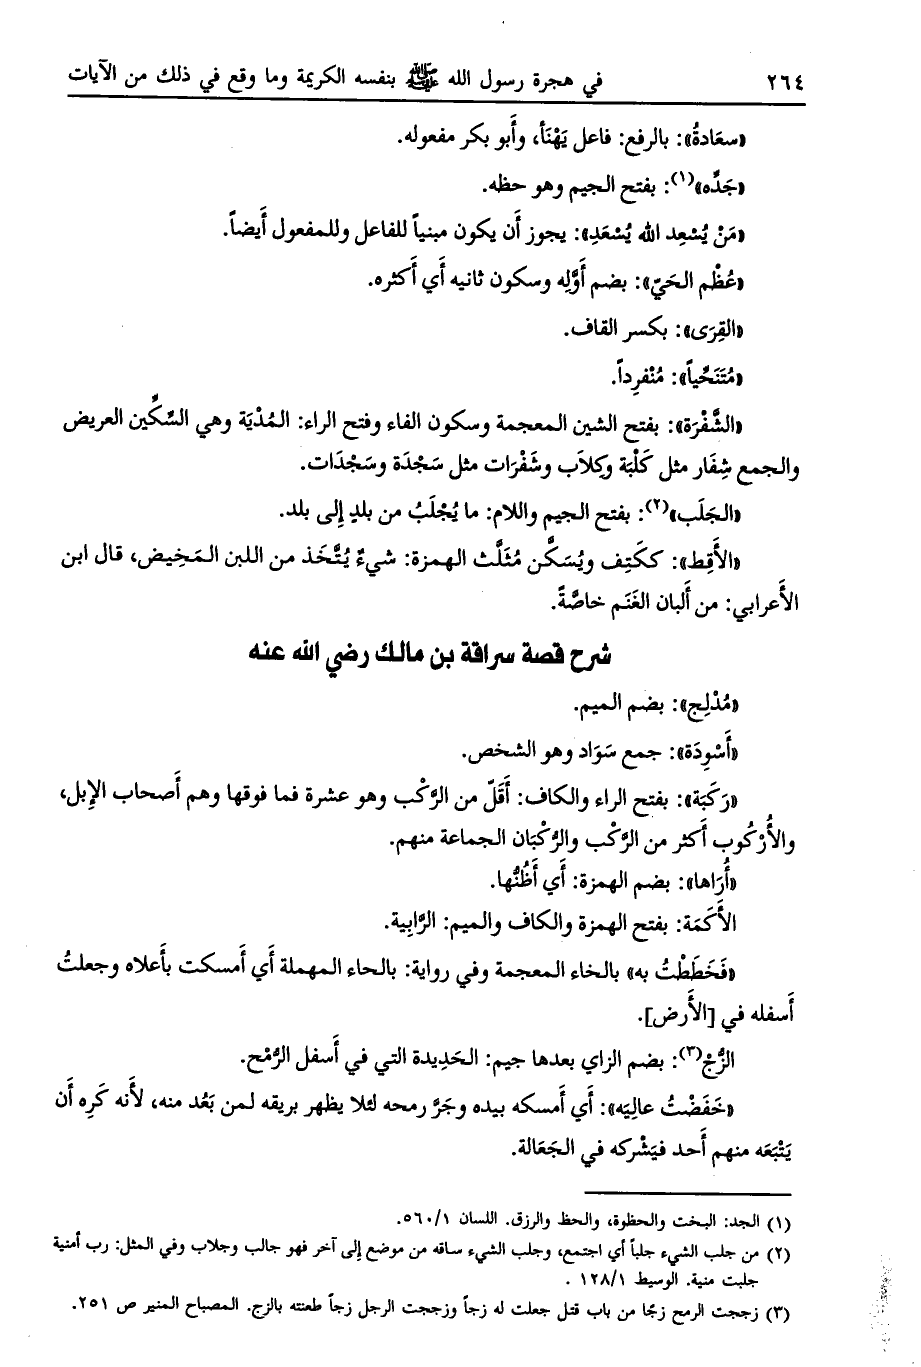 ٢٦٤ في هجرة رسول الله ﷺ بنفسه الكريمة وما وقع في ذلك من الآيات
«سعَادةُ»: بالرفع: فاعل يَهْنَأ، وأَبو بكر مفعوله.
«جَدِّه»(١): بفتح الجيم وهو حظه.
«مَنْ يُسْعِد الله يُسْعَدِ»: يجوز أَن يكون مبنياً للفاعل وللمفعول أَيضاً.
«عُظْم الحَيّ»: بضم أَوَّلِه وسكون ثانيه أَي أَكثره.
«القِرَى»: بكسر القاف.
«مُتَنَحِّياً»: مُنْفرِداً.
«الشَّفْرَة»: بفتح الشين المعجمة وسكون الفاء وفتح الراء: المُدْيَة وهي السِّكِّين العريض
والجمع شِفَار مثل كَلْبَة وكِلاَب وشَفْرَات مثل سَجْدَة وسَجْدَات.
«الجَلَب»(٢): بفتح الجيم واللام: ما يُجْلَبُ من بلدٍ إِلى بلد.
«الأَقِط»: ككَتِف ويُسَكَّن مُثَلَّث الهمزة: شيءٌ يُتَّخَذ من اللبن المَخِيض، قال ابن
الأَعرابي: من أَلبان الغَنَم خاصَّةً.
شرح قصة سراقة بن مالك رضي الله عنه
«مُدْلِج»: بضم الميم.
«أَسْوِدَة»: جمع سَوَاد وهو الشخص.
«رَكَبَة»: بفتح الراء والكاف: أَقَلّ من الرَّكْب وهو عشرة فما فوقها وهم أَصحاب الإِبل،
والأُرْكُوب أَكثر من الرَّكْب والرُّكْبَان الجماعة منهم.
«أُرَاها»: بضم الهمزة: أَي أَظُنُّها.
الأَكَمَة: بفتح الهمزة والكاف والميم: الرَّابِية.
«فَخَطَطْتُ به» بالخاء المعجمة وفي رواية: بالحاء المهملة أَي أَمسكت بأَعلاه وجعلتُ
أَسفله في [الأَرض].
الزُّجْ(٣): بضم الزاي بعدها جيم: الحَدِيدة التي في أَسفل الرُّمْح.
«خَفَضْتُ عالِيَه»: أَي أَمسكه بيده وجَرَّ رمحه لئلا يظهر بريقه لمن بَعُد منه، لأَنه كَرِه أَن
يَتْبَعَه منهم أَحد فيَشْركه في الجَعَالة.
(١) الجد: البخت والحظوة، والحظ والرزق. اللسان ٥٦٠/١.
(٢) من جلب الشيء جلباً أي اجتمع، وجلب الشيء ساقه من موضع إلى آخر فهو جالب وجلاب وفي المثل: رب أمنية
جلبت منية. الوسيط ١٢٨/١ .
(٣) زججت الرمح زجًا من باب قتل جعلت له زجاً وزججت الرجل زجاً طعنته بالزج. المصباح المنير ص ٢٥١.